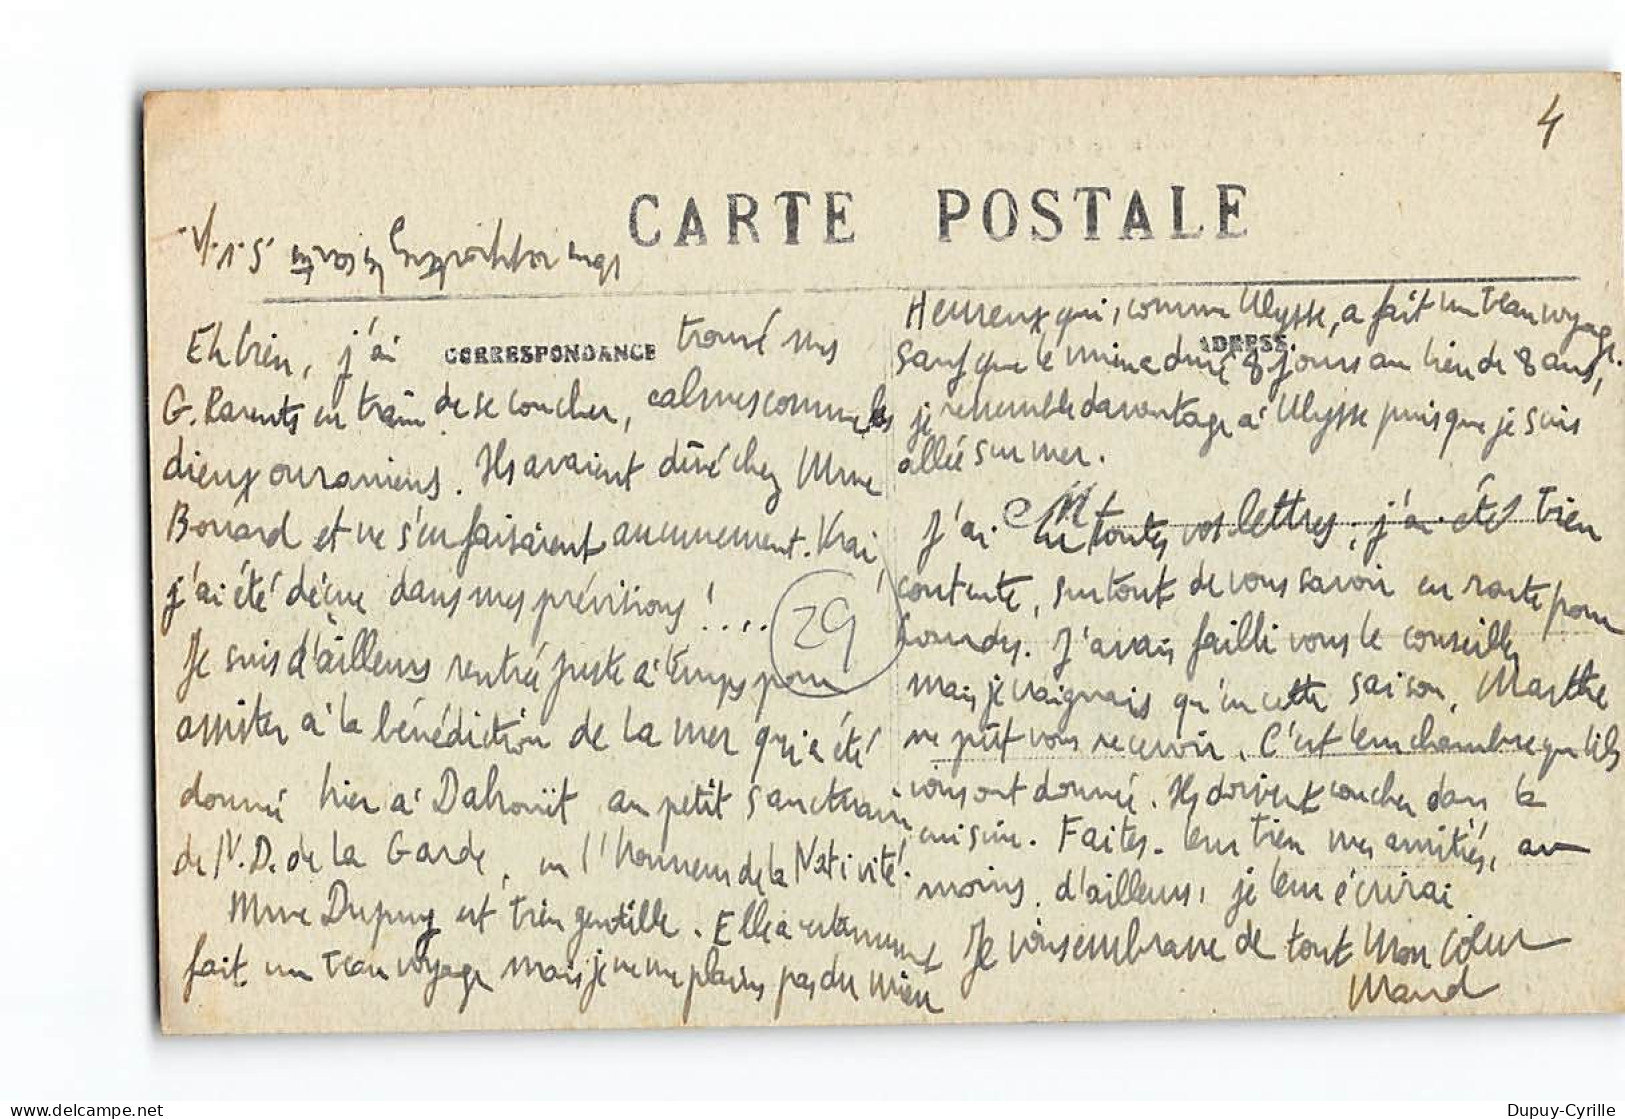 4
CARTE POSTALE
Eh bien, j'ai CORRESPONDANCE trouvé mes
G. Parents en train de se coucher, calmes comme les
dieux ouraniens. Ils avaient dîné chez Mme
Bouard et ne s'en faisaient aucunement. Vrai,
j'ai été déçue dans mes prévisions !....
29
Je suis d'ailleurs rentrée juste à temps pour
assister à la bénédiction de la mer qui a été
donnée hier à Dahouët au petit sanctuaire
de N. D. de la Garde, en l'honneur de la Nativité.
Mme Dupuy est bien gentille. Elle a certainement
fait un beau voyage mais je ne me plains pas du mien
Heureux qui, comme Ulysse, a fait un beau voyage.
ADRESSE
sauf que le mien a duré 8 jours au lieu de 8 ans,
je ressemble davantage à Ulysse puisque je suis
allée sur mer.
J'ai eu toutes vos lettres, j'ai été bien
contente, surtout de vous savoir en route pour
Lourdes. J'avais failli vous le conseiller
mais je craignais qu'en cette saison, Marthe
ne pût vous recevoir. C'est leur chambre qu'ils
vous ont donnée. Ils doivent coucher dans la
cuisine. Faites-leur bien mes amitiés, au
moins. d'ailleurs, je leur écrirai
Je vous embrasse de tout mon cœur
Maud
Dupuy-Cyrille